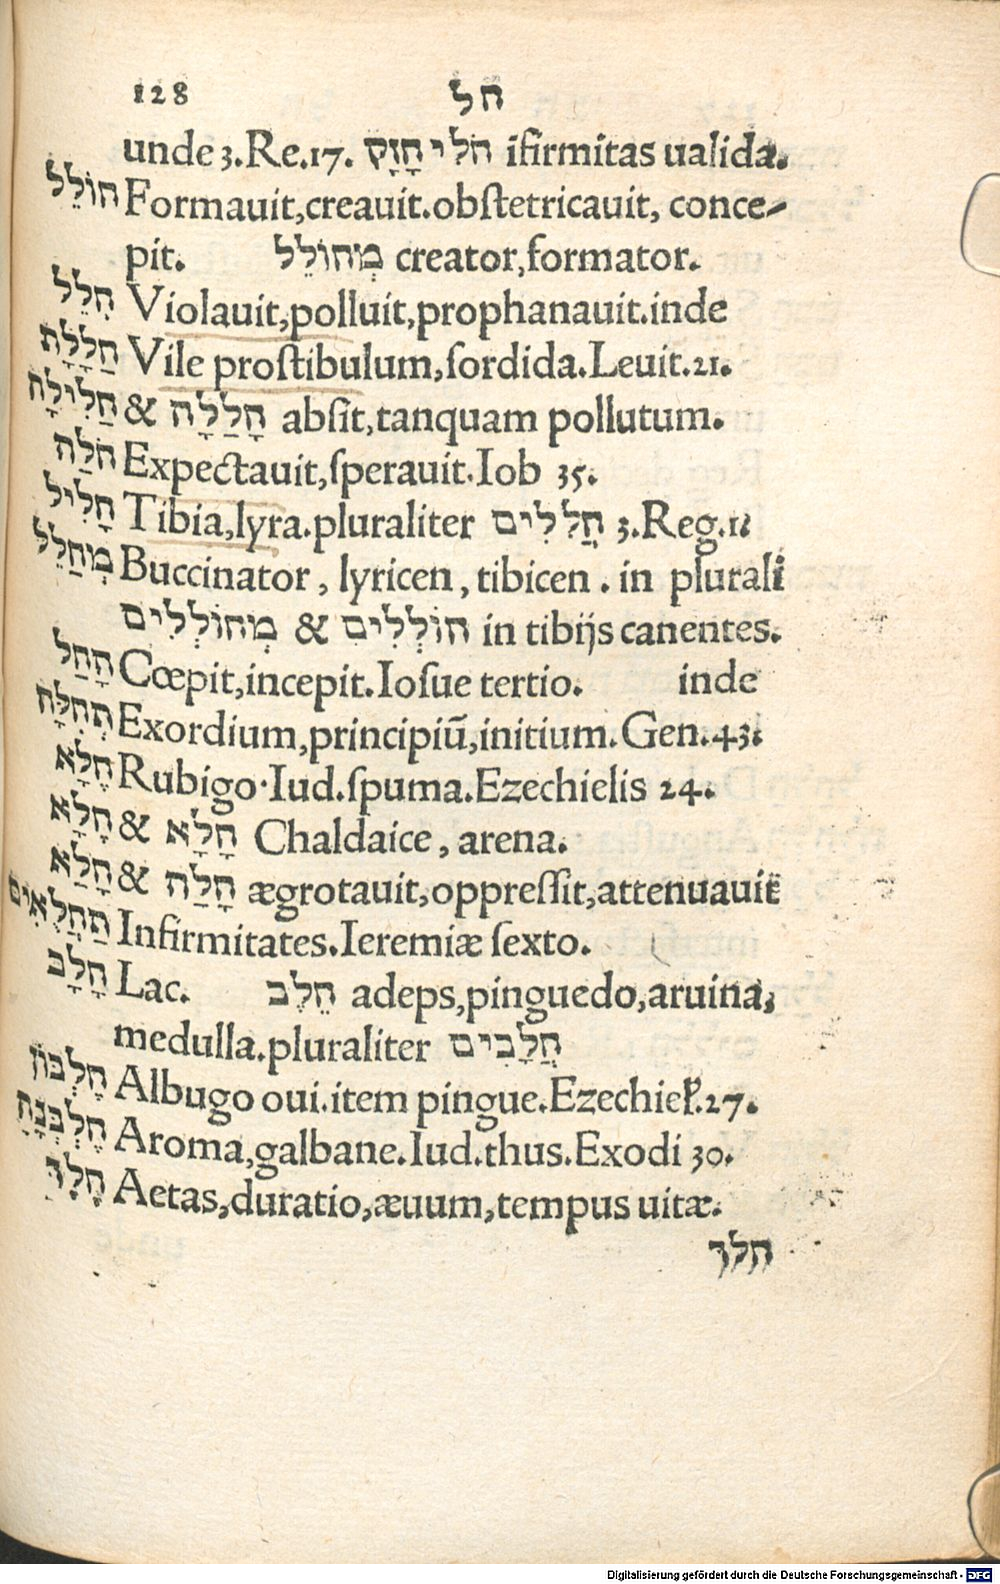 128 חל
unde 3.Re.17. חלי חָזָק īfirmitas ualida.
חוֹלֵל Formauit,creauit.obſtetricauit, conce-
pit. מְחוֹלֵל creator,formator.
חִלֵל Violauit,polluit,prophanauit.inde
חַלָלָה Vile proſtibulum,ſordida.Leuit.21.
חַלִילָה & חָלַלָה abſit,tanquam pollutum.
חֹלַה Expectauit,ſperauit.Iob 35.
חָלִיל Tibia,lyra.pluraliter חֲלִלִים 3.Reg.1.
מְחַלֵל Buccinator, lyricen, tibicen. in plurali
חוֹלְלִים & מְחוֹלְלִים in tibijs canentes.
הָחַל Cœpit,incepit.Ioſue tertio. inde
תְחִלָה Exordium,principiū,initium.Gen.43.
חֶלְאָ Rubigo.Iud.ſpuma.Ezechielis 24.
חָלָא & חָלָא Chaldaice, arena.
חָלַא & חָלַה ægrotauit,oppreſſit,attenuauit
תַחֲלֻאִים Infirmitates.Ieremiæ ſexto.
חָלָב Lac. חֵלֶב adeps,pinguedo,aruina,
medulla.pluraliter חֲלָבִים
חֶלְבּוֹן Albugo oui.item pingue.Ezechieł.27.
חֶלְבְּנָה Aroma,galbane.Iud.thus.Exodi 30.
חָלָד Aetas,duratio,æuum,tempus uitæ.
חלך
Digitalisierung gefördert durch die Deutsche Forschungsgemeinschaft - DFG